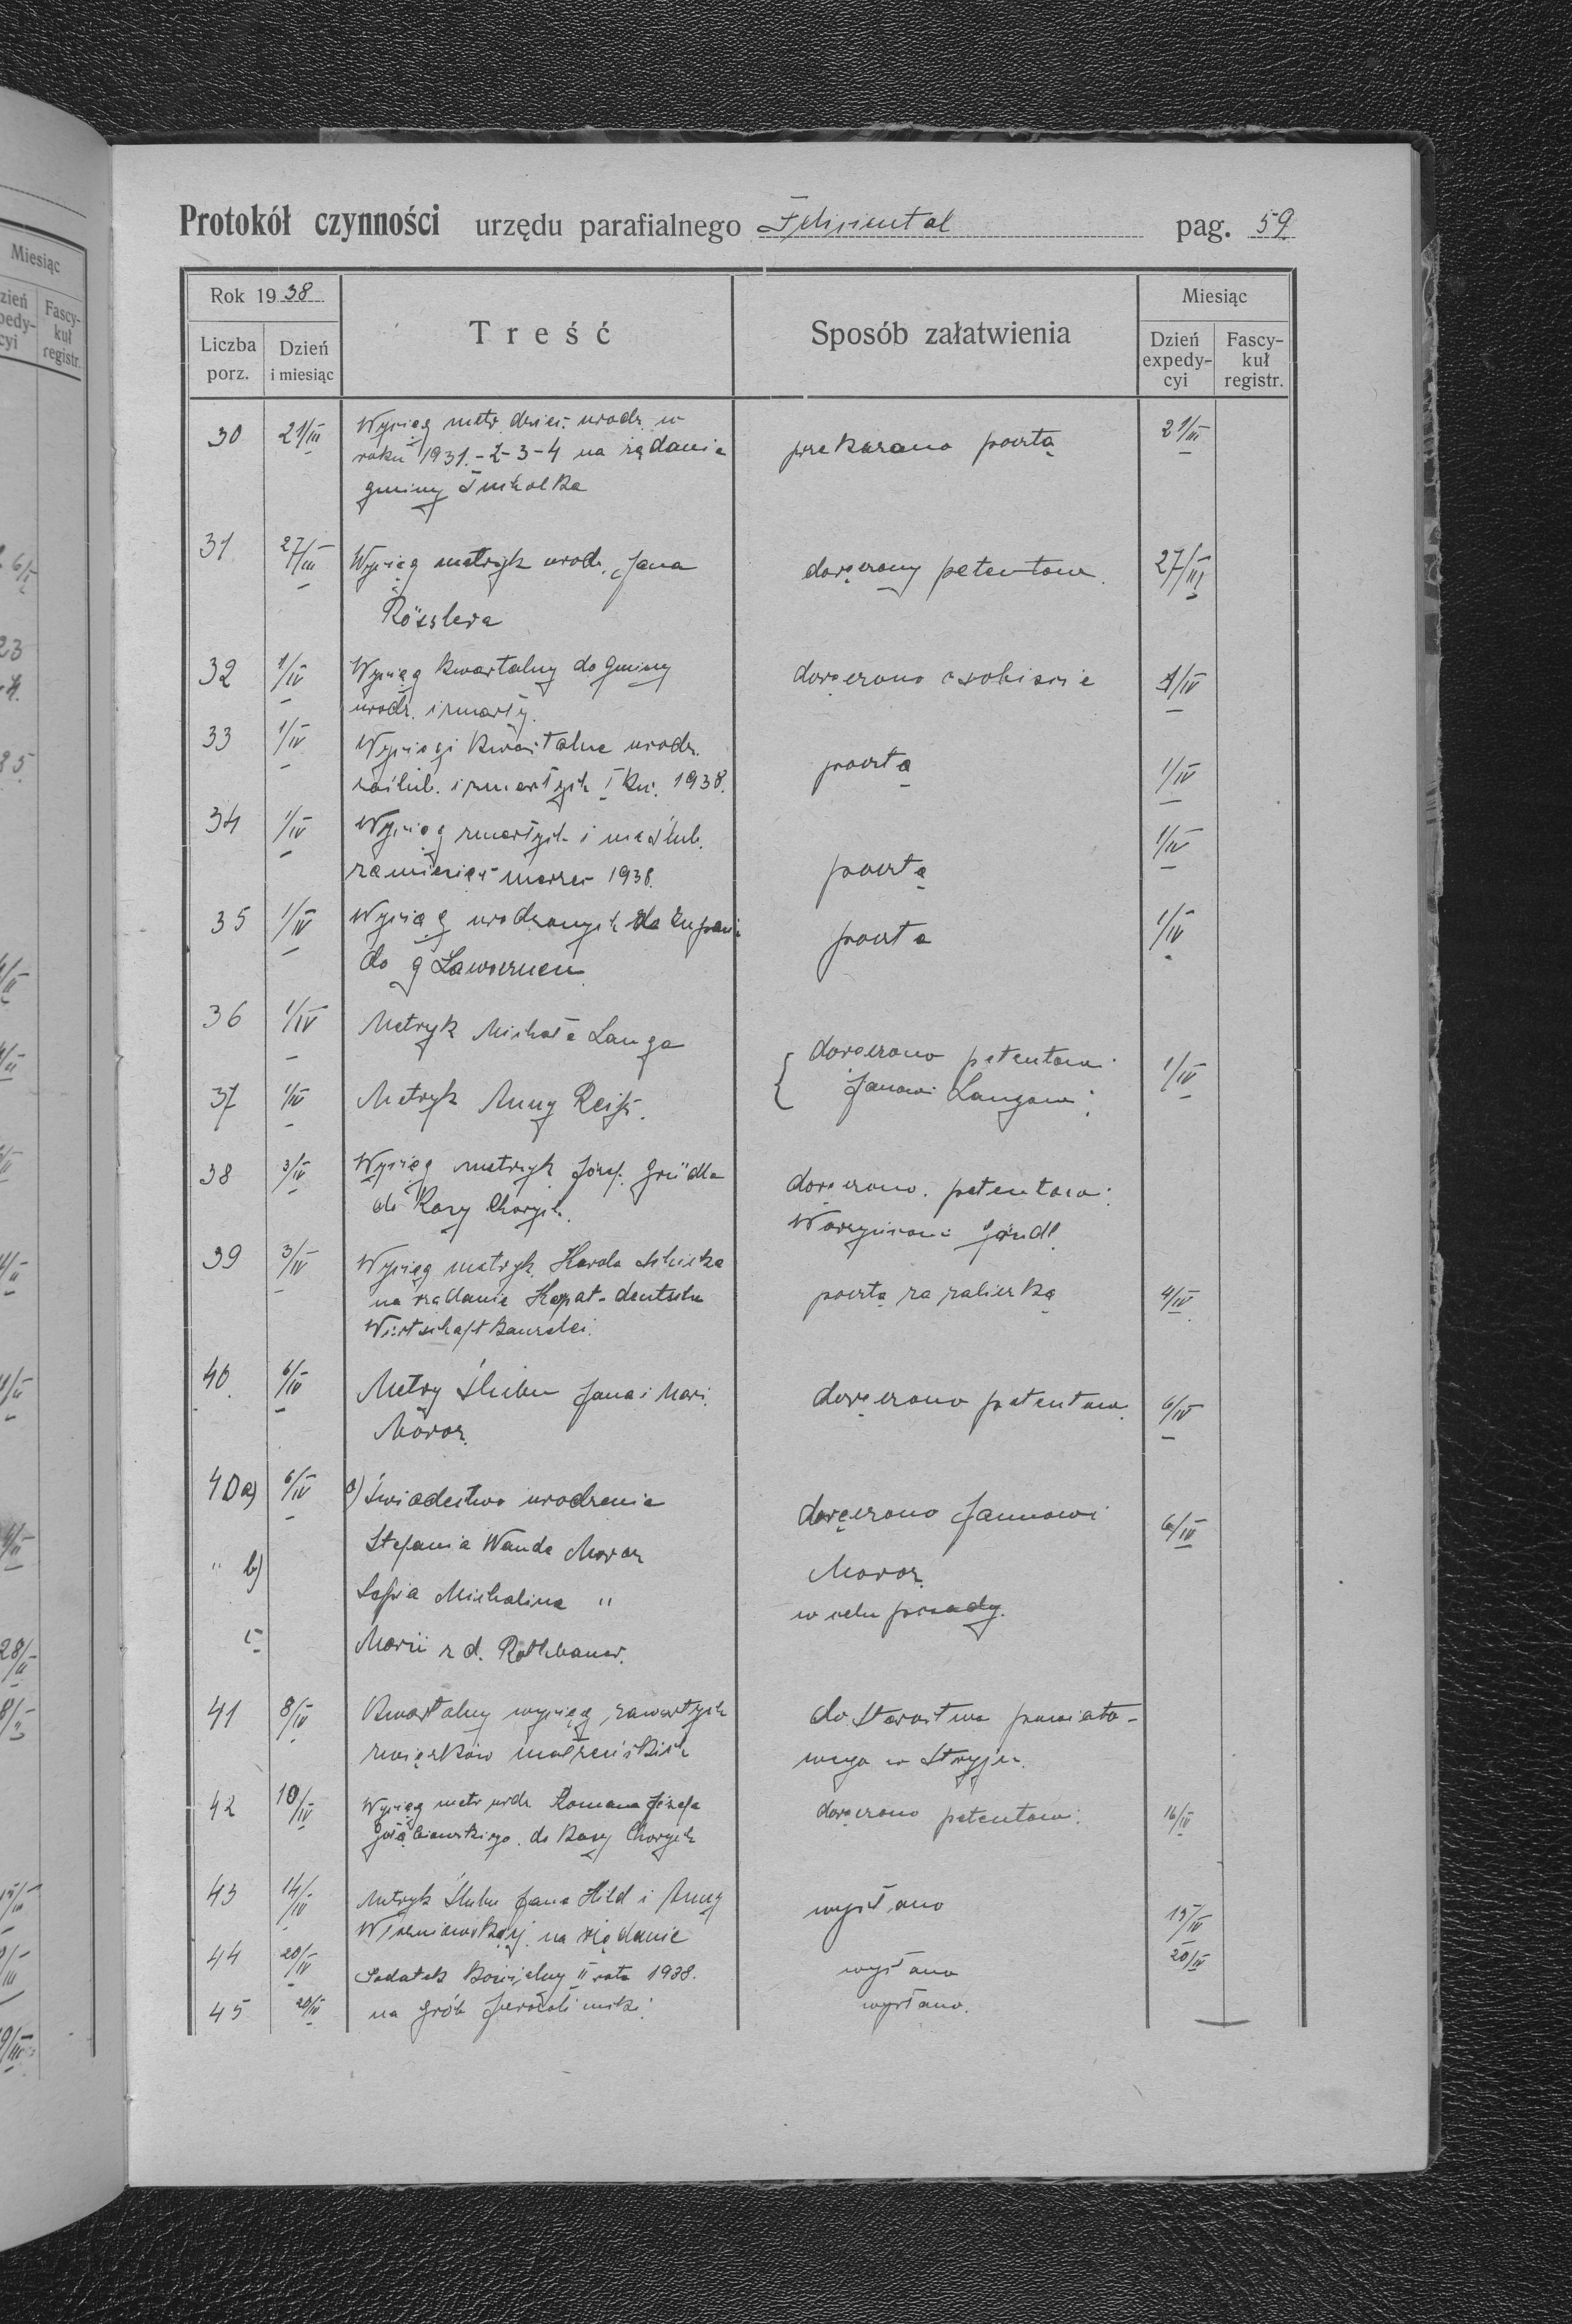 Protokół czynności urzędu parafialnego Feliciental pag. 59
Rok 1938
Miesiąc
Liczba porz.
Dzień i miesiąc
Treść
Sposób załatwienia
Dzień expedycyi
Fascykuł registr.
30 21/III Wyciąg metr. dzieci urodz. w
roku 1931.-2-3-4 na żądanie przekazano pocztą 21/III
gminy Tucholka
31 27/III Wyciąg metryk urodz. Jana doręczony petentowi. 27/III
Rösslera
32 1/IV Wyciąg kwartalny do gminy doręczono osobiście 1/IV
urodz. i zmarły.
33 1/IV Wyciągi kwartalne urodz. pocztą 1/IV
zaślub. i zmarłych I kw. 1938.
34 1/IV Wyciąg zmarłych i zaślub. 1/IV
za miesiąc marzec 1938. pocztą
35 1/IV Wyciąg urodzonych
do g Ławoczneu pocztą 1/IV
36 1/IV Metryk Michała Langa doręczono petentowi
37 1/IV Metryk Anny Reiß. Janowi Langowi. 1/IV
38 3/IV Wyciąg metryk Józef. Gründla doręczono. petentowi.
do Kasy Chorych. Wawrzyńcowi Gründl.
39 3/IV Wyciąg metryk. Karola
na żądanie Karpat-deutsche pocztą za zaliczką 4/IV
Wirtschaftkanzlei.
40. 6/IV Metry ślubu Jana i Mari. doręczono petentowi 6/IV
Moroz.
40a) 6/IV a) Świadectwo urodzenie doręczono Jannowi 6/IV
Stefania Wanda Moroz Moroz.
" b) Zofia Michalina " w celu posady.
c Marii z d. Rothbauer.
41 8/IV Kwartalny wyciąg zawartych do Starostwa powiato-
związków małżeńskich wego w Stryju.
42 10/IV Wyciąg metr urdz Romana Józefa doręczono petentowi. 16/IV
Gołąbiowskiego. do Kasy Chorych
43 14/IV Metryk Ślubu Jana Hild i Anny wysłano 15/IV
Wiśniewskiej na żądanie
44 20/IV Podatek kościelny II rata 1938. wysłano 20/IV
45 20/IV na Grób Jerozolimski. wysłano.